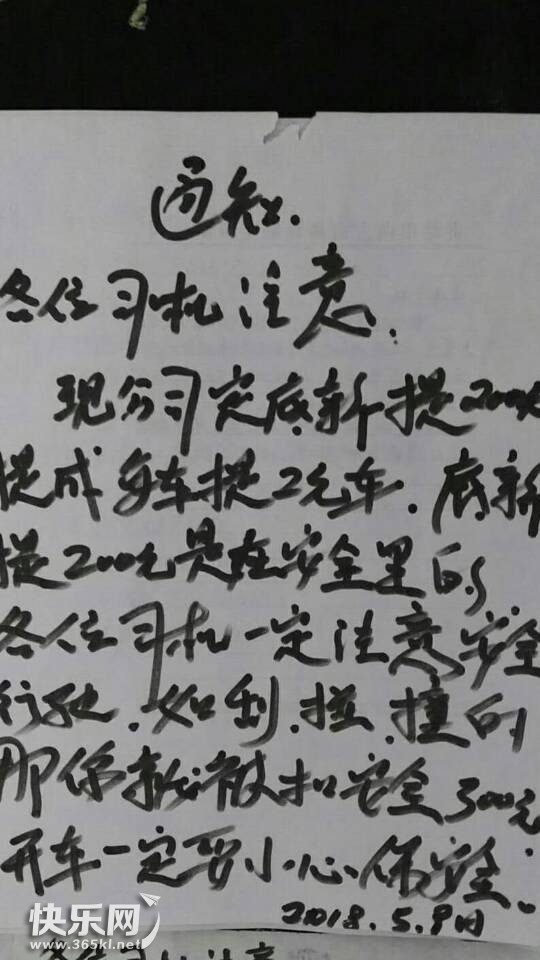 通知.
各位司机注意.
现公司定底新提200元
提成每车提2元车.底新
提200元是在安全里的.
各位司机一定注意安全
行驶.如到.碰.撞的
那你就被扣安全300元
开车一定要小心保安全.
2018.5.9日
快乐网
www.365kl.net
各位司机注意